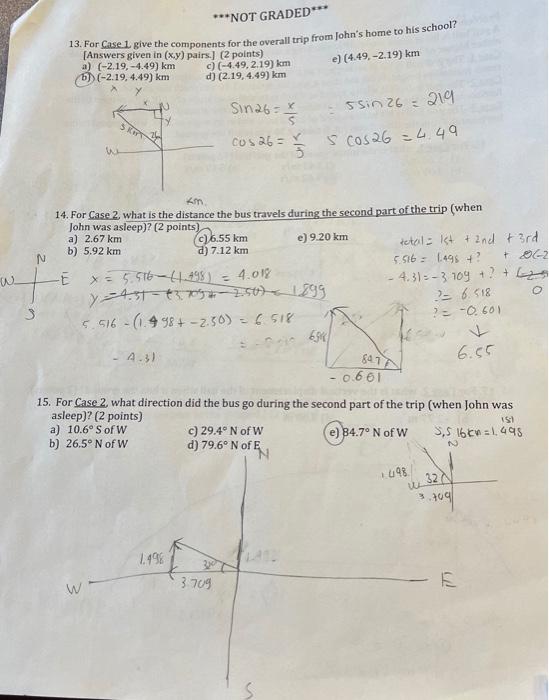 ***NOT GRADED***
13. For Case 1, give the components for the overall trip from John's home to his school?
[Answers given in (x,y) pairs.] (2 points)
a) (-2.19, -4.49) km c) (-4.49, 2.19) km e) (4.49, -2.19) km
b) (-2.19, 4.49) km d) (2.19, 4.49) km
x y
x N
y
5 km 26
W
Sin26 = x/5 = 5 sin 26 = 219
cos26 = y/5 5 cos26 = 4.49
km
14. For Case 2, what is the distance the bus travels during the second part of the trip (when
John was asleep)? (2 points)
a) 2.67 km c) 6.55 km e) 9.20 km
b) 5.92 km d) 7.12 km
total = 1st + 2nd + 3rd
5.516 = 1.498 + ? +
-4.31 = -3.709 + ? +
? = 6.518
? = -0.601
6.55
N
W E
S
x = 5.516 - (1.498) = 4.018
1.899
5.516 - (1.498 + -2.50) = 6.518
- 4.31
84.7
- 0.601
15. For Case 2, what direction did the bus go during the second part of the trip (when John was
asleep)? (2 points)
a) 10.6° S of W c) 29.4° N of W e) 84.7° N of W
b) 26.5° N of W d) 79.6° N of E
1st
5.516 km = 1.498
N
1.498 32
W
3.709
N
1.498
3.709
W E
S